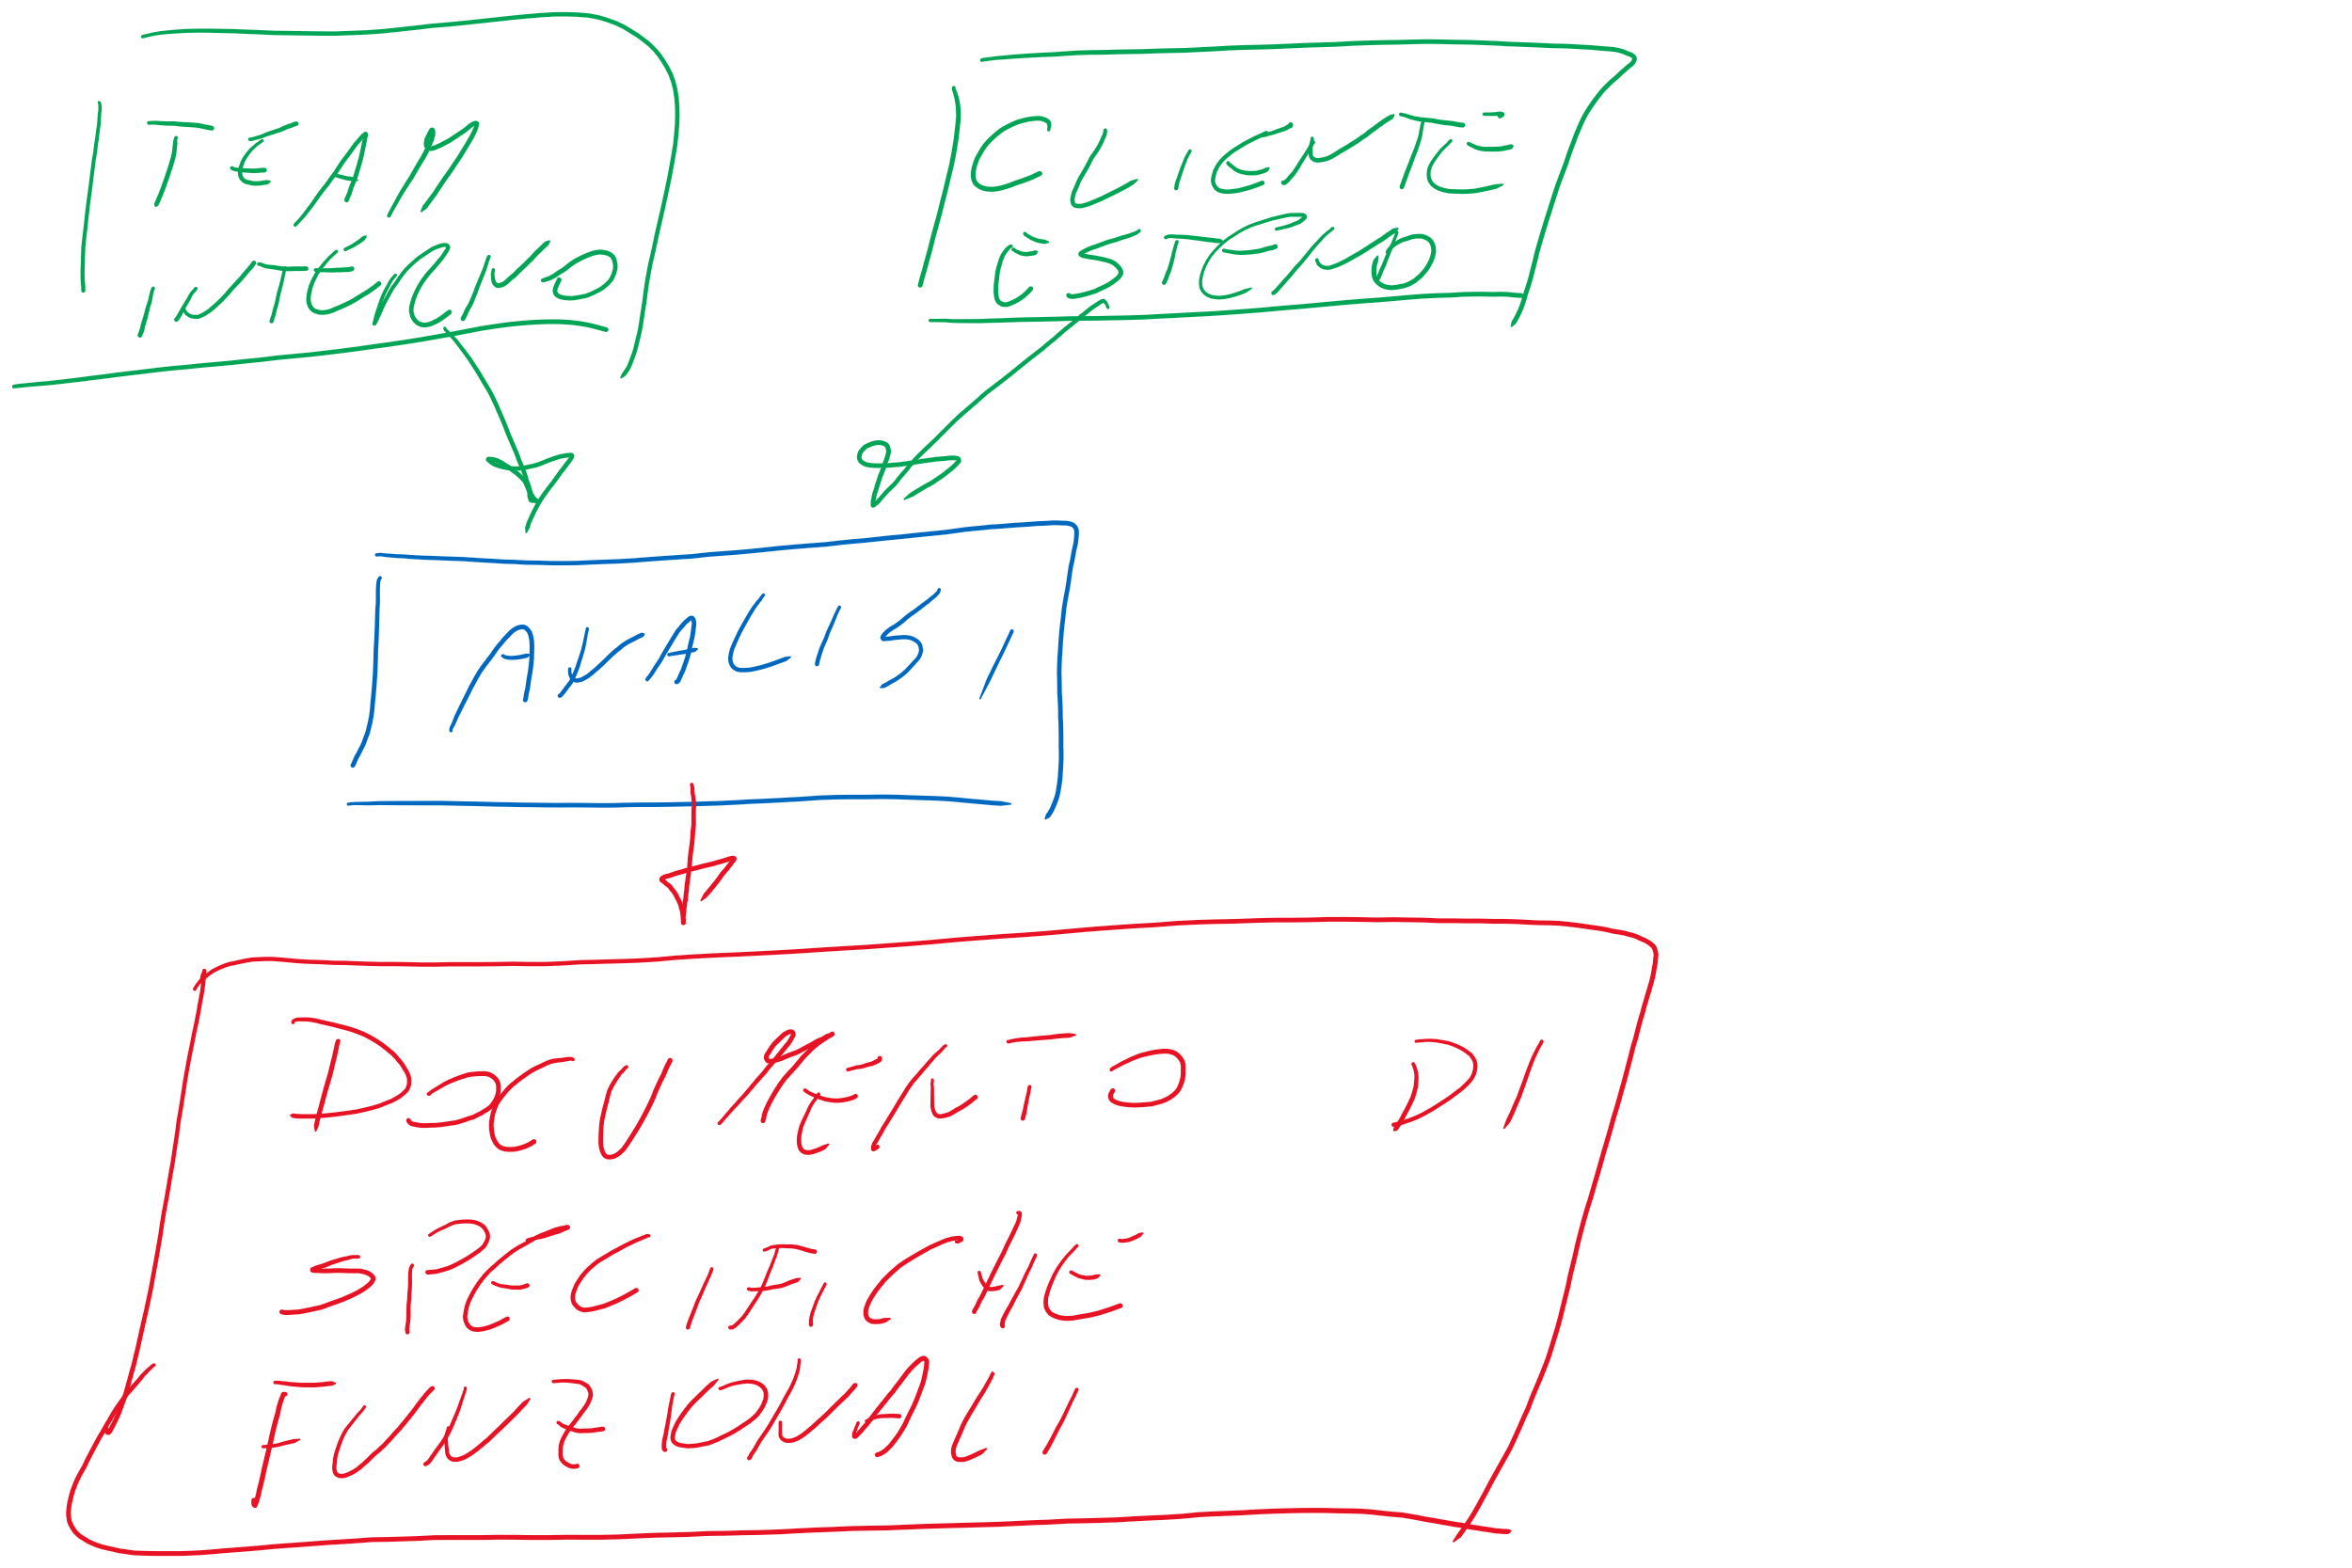 TEAM
INTERNO
CLIENTE
ESTERNO
ANALISI
DOCUMENTO DI
SPECIFICHE
FUNZIONALI